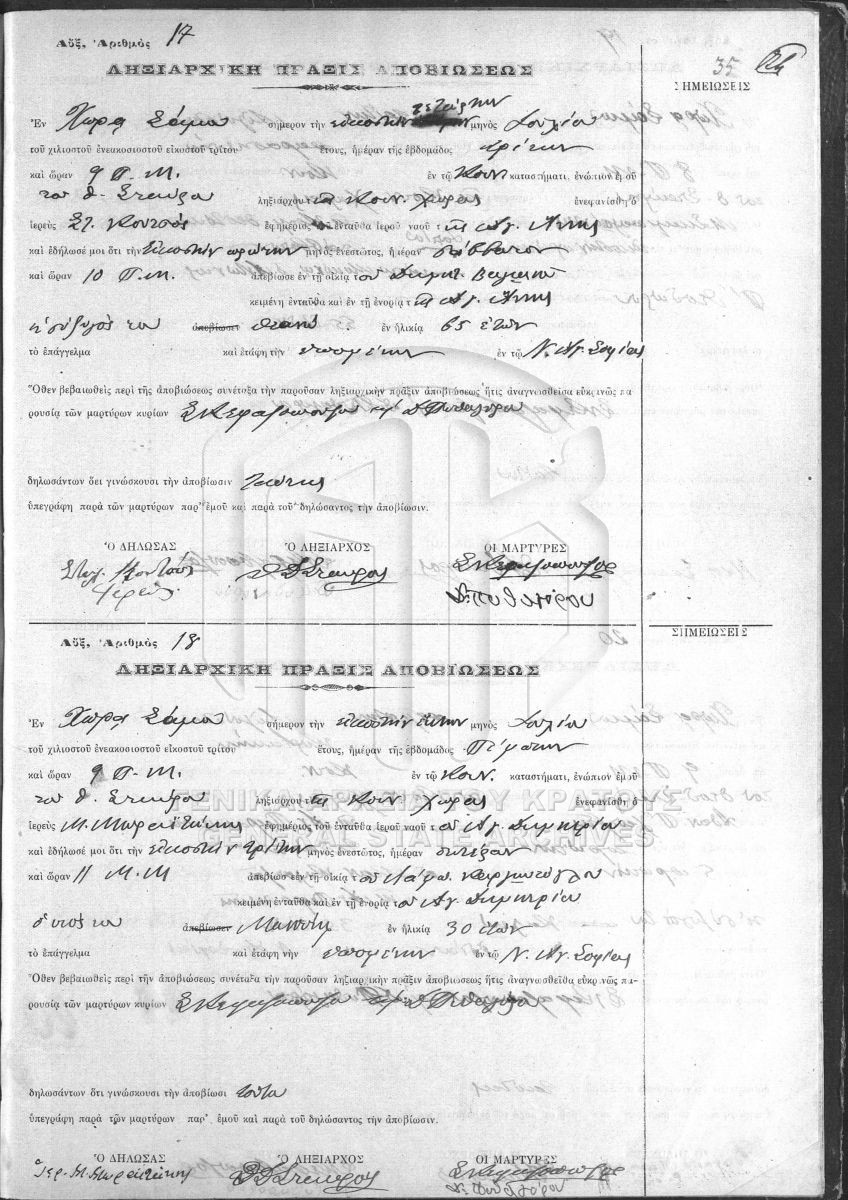 Αὔξ. Ἀριθμὸς 17
35
ΛΗΞΙΑΡΧΙΚΗ ΠΡΑΞΙΣ ΑΠΟΒΙΩΣΕΩΣ
ΣΗΜΕΙΩΣΕΙΣ
Ἐν Χώρᾳ Σάμου σήμερον τὴν εἰκοστὴν τετάρτην μηνὸς Ἰουλίου
τοῦ χιλιοστοῦ ἐνεακοσιοστοῦ εἰκοστοῦ τρίτου ἔτους, ἡμέραν τῆς ἑβδομάδος τρίτην
καὶ ὥραν 9 Π.Μ. ἐν τῷ Κοιν. καταστήματι, ἐνώπιον ἐμοῦ
τοῦ Θ. Σταύρου ληξιάρχου τῆς Κοιν. Χώρας ἐνεφανίσθη ὁ
ἱερεὺς Στ. Κουτσὸς ἐφημέριος τοῦ ἐνταῦθα ἱεροῦ ναοῦ τῆς Ἁγ. Ἄννης
καὶ ἐδήλωσέ μοι ὅτι τὴν εἰκοστὴν πρώτην μηνὸς ἐνεστῶτος, ἡμέραν Σάββατον
καὶ ὥραν 10 Π.Μ. ἀπεβίωσε ἐν τῇ οἰκίᾳ τοῦ Δημητ.
κειμένῃ ἐνταῦθα καὶ ἐν τῇ ἐνορίᾳ τῆς Ἁγ. Ἄννης
ἡ σύζυγός του ἀποβίωσις ἐν ἡλικίᾳ 65 ἐτῶν
τὸ ἐπάγγελμα καὶ ἐτάφη τὴν ἑπομένην ἐν τῷ Ν. Ἁγ. Σοφίας
Ὅθεν βεβαιωθεὶς περὶ τῆς ἀποβιώσεως συνέταξα τὴν παροῦσαν ληξιαρχικὴν πρᾶξιν ἀποβιώσεως ἥτις ἀναγνωσθεῖσα εὐκρινῶς πα-
ρουσίᾳ τῶν μαρτύρων κυρίων
δηλωσάντων ὅει γινώσκουσι τὴν ἀποβίωσιν ταύτης
ὑπεγράφη παρὰ τῶν μαρτύρων παρ' ἐμοῦ καὶ παρὰ τοῦ δηλώσαντος τὴν ἀποβίωσιν.
Ὁ ΔΗΛΩΣΑΣ Ὁ ΛΗΞΙΑΡΧΟΣ ΟΙ ΜΑΡΤΥΡΕΣ
Ἱερεύς Θ Σταύρου
Αὔξ. Ἀριθμὸς 18
ΣΗΜΕΙΩΣΕΙΣ
ΛΗΞΙΑΡΧΙΚΗ ΠΡΑΞΙΣ ΑΠΟΒΙΩΣΕΩΣ
Ἐν Χώρᾳ Σάμου σήμερον τὴν εἰκοστὴν ἕκτην μηνὸς Ἰουλίου
τοῦ χιλιοστοῦ ἐνεακοσιοστοῦ εἰκοστοῦ τρίτου ἔτους, ἡμέραν τῆς ἑβδομάδος Πέμπτην
καὶ ὥραν 9 Π.Μ. ἐν τῷ Κοιν. καταστήματι, ἐνώπιον ἐμοῦ
τοῦ Θ. Σταύρου ληξιάρχου τῆς Κοιν. Χώρας ἐνεφανίσθη ὁ
ΓΕΝΙΚΑ ΑΡΧΕΙΑ ΤΟΥ ΚΡΑΤΟΥΣ
ἱερεὺς Μ. Μωραϊτάκης ἐφημέριος τοῦ ἐνταῦθα ἱεροῦ ναοῦ τοῦ Ἁγ. Δημητρίου
GENERAL STATE ARCHIVES
καὶ ἐδήλωσέ μοι ὅτι τὴν εἰκοστὴν τρίτην μηνὸς ἐνεστῶτος, ἡμέραν
καὶ ὥραν 11 Μ.Μ ἀπεβίωσε ἐν τῇ οἰκίᾳ τοῦ
κειμένῃ ἐνταῦθα καὶ ἐν τῇ ἐνορίᾳ τοῦ Ἁγ. Δημητρίου
ὁ υἱός του ἀπεβίωσεν ἐν ἡλικίᾳ 30 ἐτῶν
τὸ ἐπάγγελμα καὶ ἐτάφη τὴν ἑπομένην ἐν τῷ Ν. Ἁγ. Σοφίας
Ὅθεν βεβαιωθεὶς περὶ τὴν ἀποβιώσεως συνέταξα τὴν παροῦσαν ληξιαρχικὴν πρᾶξιν ἀποβιώσεως ἥτις ἀναγνωσθεῖσα εὐκρινῶς πα-
ρουσίᾳ τῶν μαρτύρων κυρίων
δηλωσάντων ὅτι γινώσκουσι τὴν ἀποβίωσι τούτου
ὑπεγράφη παρὰ τῶν μαρτύρων παρ' ἐμοῦ καὶ παρὰ τοῦ δηλώσαντος τὴν ἀποβίωσιν.
Ὁ ΔΗΛΩΣΑΣ Ὁ ΛΗΞΙΑΡΧΟΣ ΟΙ ΜΑΡΤΥΡΕΣ
Θ Σταύρου